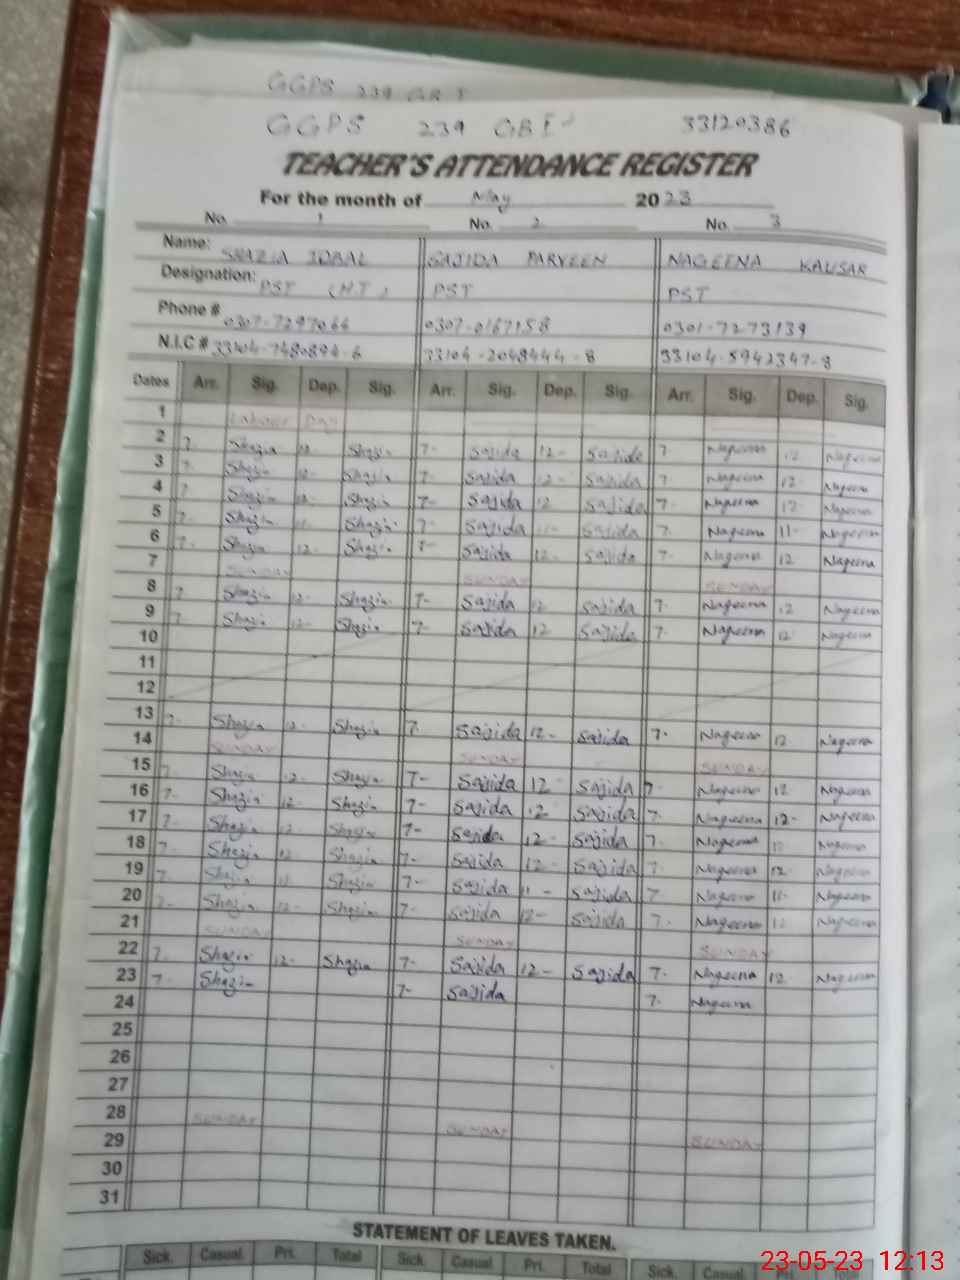 GGPS 239 GB I
GGPS 239 GBI 33120386
TEACHER'S ATTENDANCE REGISTER
For the month of May 2023
No. 1 No. 2 No. 3
Name: SHAZIA IQBAL SAJIDA PARVEEN NAGEENA KAUSAR
Designation: PST (H.T) PST PST
Phone # 0307-7297066 0307-0167158 0301-7273139
N.I.C # 33104-7480894-6 33104-2048444-8 33104-5942347-8
Dates Arr. Sig. Dep. Sig. Arr. Sig. Dep. Sig. Arr. Sig. Dep. Sig.
1 Labour Day
2 7- Shazia 12- Shazia 7- Sajida 12- Sajida 7- Nageena 12 Nageena
3 7- Shazia 12- Shazia 7- Sajida 12- Sajida 7 Nageena 12- Nageena
4 7 Shazia 12- Shazia 7- Sajida 12 Sajida 7 Nageena 12- Nageena
5 7- Shazia 11 Shazia 7- Sajida 11- Sajida 7 Nageena 11- Nageena
6 7- Shazia 12- Shazia 7- Sajida 12- Sajida 7- Nageena 12 Nageena
7 SUNDAY SUNDAY SUNDAY
8 7- Shazia 12- Shazia 7- Sajida 12 Sajida 7- Nageena 12 Nageena
9 7- Shazia 12- Shazia 7- Sajida 12 Sajida 7- Nageena 12 Nageena
10
11
12
13 7- Shazia 12- Shazia 7- Sajida 12- Sajida 7- Nageena 12 Nageena
14 SUNDAY SUNDAY SUNDAY
15 7- Shazia 12- Shazia 7- Sajida 12- Sajida 7- Nageena 12 Nageena
16 7- Shazia 12- Shazia 7- Sajida 12 Sajida 7- Nageena 12- Nageena
17 7- Shazia 12- Shazia 7- Sajida 12- Sajida 7- Nageena 12 Nageena
18 7- Shazia 12 Shazia 7- Sajida 12- Sajida 7- Nageena 12- Nageena
19 7- Shazia 11 Shazia 7- Sajida 11- Sajida 7 Nageena 11- Nageena
20 7- Shazia 12- Shazia 7- Sajida 12- Sajida 7- Nageena 12 Nageena
21 SUNDAY SUNDAY SUNDAY
22 7- Shazia 12- Shazia 7- Sajida 12- Sajida 7- Nageena 12- Nageena
23 7- Shazia 7- Sajida 7- Nageena
24
25
26
27
28 SUNDAY SUNDAY SUNDAY
29
30
31
STATEMENT OF LEAVES TAKEN.
Sick. Casual. Pri. Total Sick. Casual. Pri. Total Sick. Casual. Pri.
23-05-23 12:13